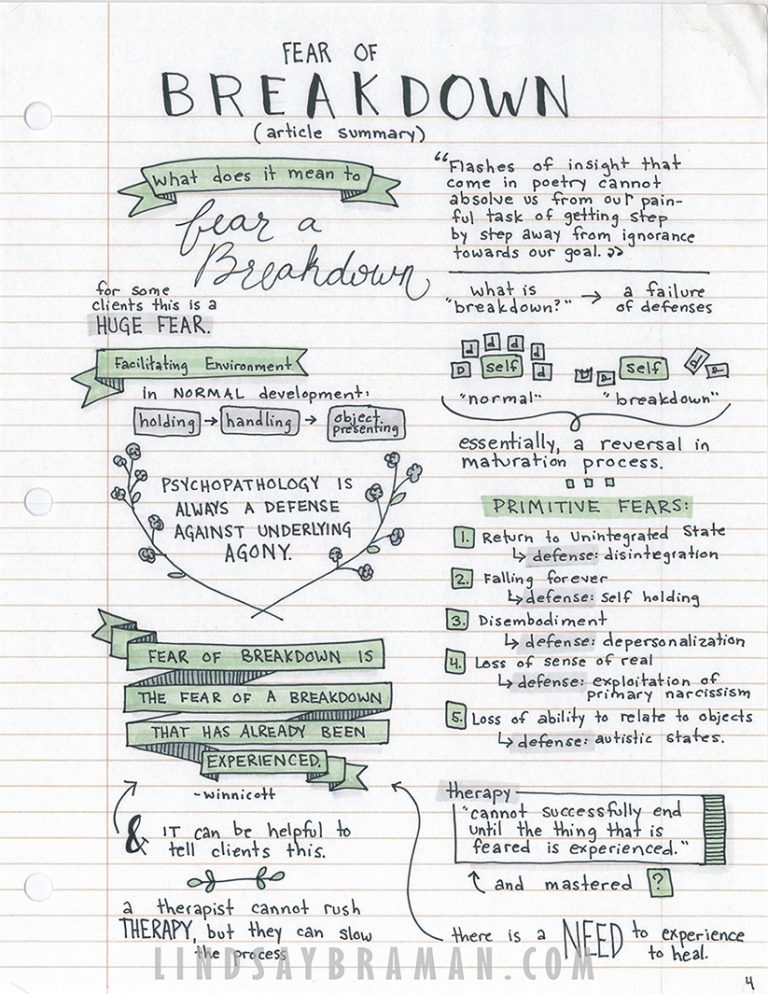 FEAR OF
BREAKDOWN
(article summary)
what does it mean to
fear a
Breakdown
for some
clients this is a
HUGE FEAR.
Facilitating Environment
in NORMAL development:
holding → handling → object presenting
PSYCHOPATHOLOGY IS
ALWAYS A DEFENSE
AGAINST UNDERLYING
AGONY.
FEAR OF BREAKDOWN IS
THE FEAR OF A BREAKDOWN
THAT HAS ALREADY BEEN
EXPERIENCED.
~winnicott
& IT can be helpful to
tell clients this.
a therapist cannot rush
THERAPY, but they can slow
the process
"Flashes of insight that
come in poetry cannot
absolve us from our pain-
ful task of getting step
by step away from ignorance
towards our goal."
what is → a failure
"breakdown?" of defenses
d d d d
D self d self d d
"normal" "breakdown"
essentially, a reversal in
maturation process.
PRIMITIVE FEARS:
1. Return to Unintegrated State
↳ defense: disintegration
2. Falling forever
↳ defense: self holding
3. Disembodiment
↳ defense: depersonalization
4. Loss of sense of real
↳ defense: exploitation of
primary narcissism
5. Loss of ability to relate to objects
↳ defense: autistic states.
therapy
"cannot successfully end
until the thing that is
feared is experienced."
↑ and mastered ?
there is a NEED to experience
to heal.
LINDSAYBRAMAN.COM
4